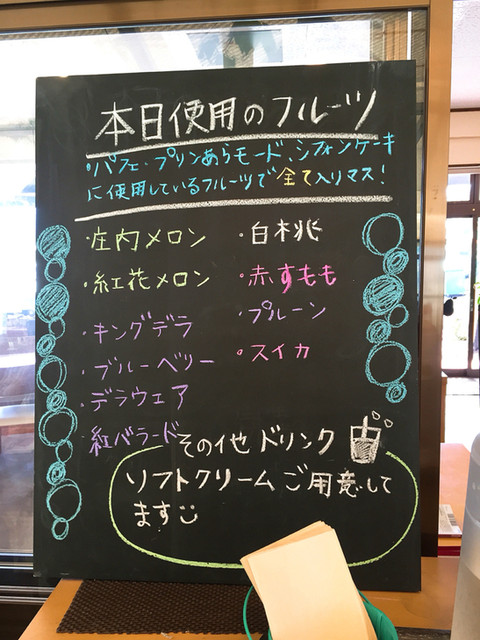 本日使用のフルーツ
・パフェ・プリンあらモード、シフォンケーキ
に使用しているフルーツで全て入りマス!
・庄内メロン
・紅花メロン
・キングデラ
・ブルーベリー
・デラウェア
・紅バラード
・白桃
・赤すもも
・プルーン
・スイカ
その他ドリンク
ソフトクリームご用意して
ます